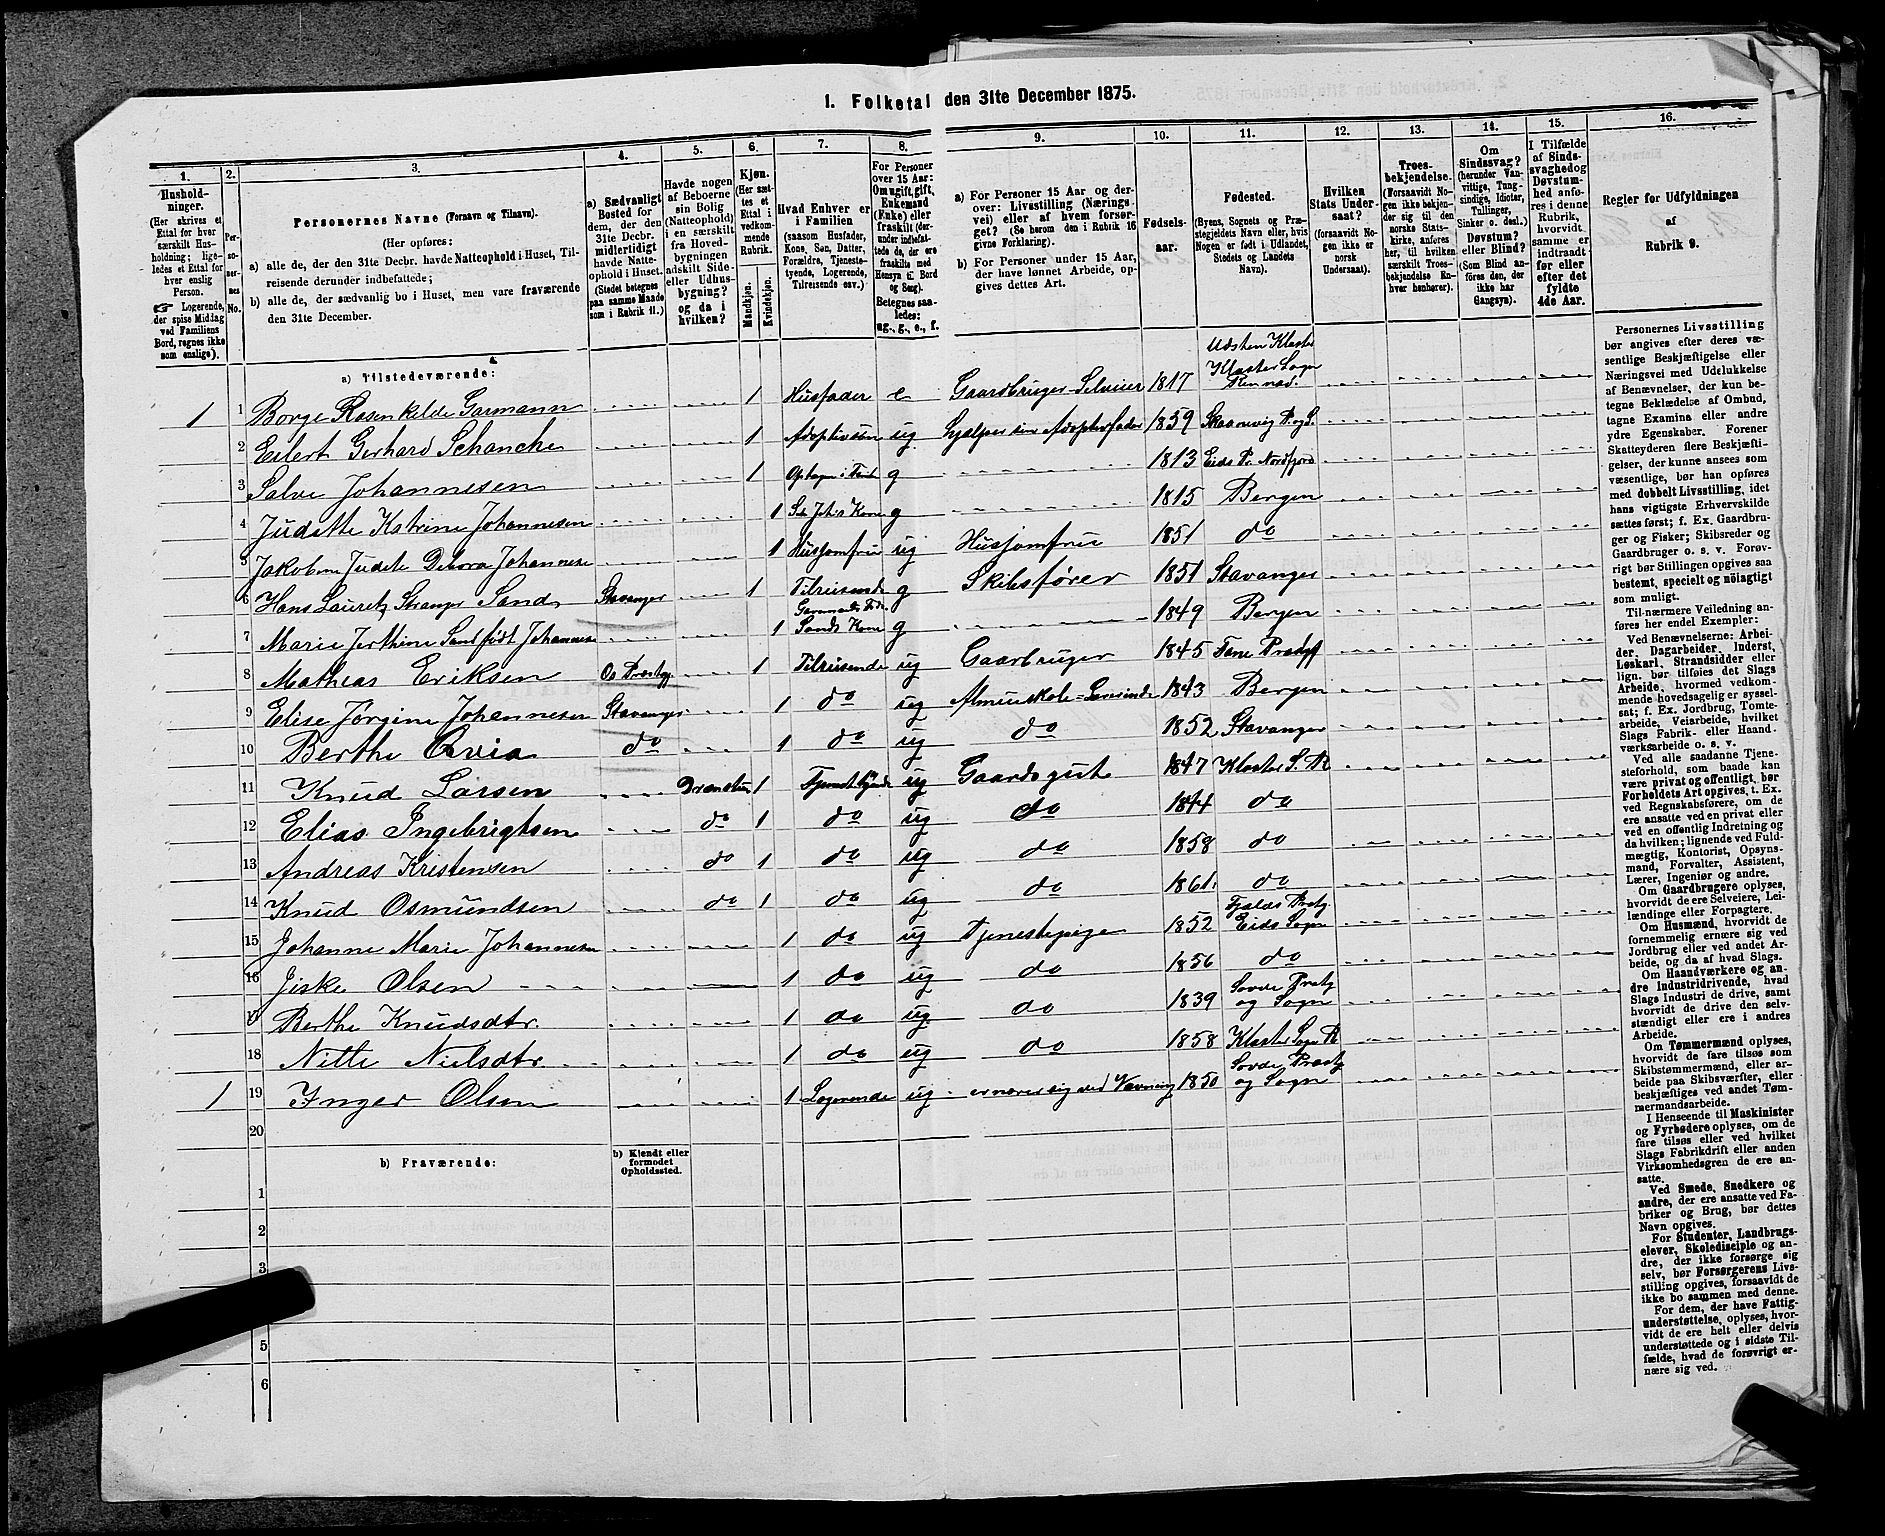 1. Folketal den 31te December 1875.
1. 2. 3. 4. 5. 6. 7. 8. 9. 10. 11. 12. 13. 14. 15. 16.
Hushold-
ninger.
(Her skrives et
Ettal for hver
særskilt Hus-
holdning; lige-
ledes et Ettal for
hver enslig
Person.
☞ Logerende,
der spise Middag
ved Familiens
Bord, regnes ikke
som enslige).
Per-
so-
ner-
nes
No.
Personernes Navne (Fornavn og Tilnavn).
(Her opføres:
a) alle de, der den 31te Decbr. havde Natteophold i Huset, Til-
reisende derunder indbefattede;
b) alle de, der sædvanlig bo i Huset, men vare fraværende
den 31te December.
a) Sædvanligt
Bosted for
dem, der den
31te Decbr.
midlertidigt
havde Natte-
ophold i Huset.
(Stedet betegnes
paa samme Maade
som i Rubrik 11.)
Havde nogen
af Beboerne
sin Bolig
(Natteophold)
i en særskilt
fra Hoved-
bygningen
adskilt Side-
eller Udhus-
bygning?
og da i
hvilken?
Kjøn.
(Her sæt-
tes et
Ettal i
vedkom-
mende
Rubrik.
Mandkjøn.
Kvindekjøn.
Hvad Enhver er
i Familien
(saasom Husfader,
Kone, Søn, Datter,
Forældre, Tjeneste-
tyende, Logerende,
Tilreisende osv.)
For Personer
over 15 Aar:
Om ugift, gift,
Enkemand
(Enke) eller
fraskilt (der-
under indbefat-
tede de, der ere
fraskilte med
Hensyn til Bord
og Seng).
Betegnes saa-
ledes:
ug., g., e., f.
a) For Personer 15 Aar og der-
over: Livsstilling (Nærings-
vei) eller af hvem forsør-
get? (Se herom den i Rubrik 16
givne Forklaring).
b) For Personer under 15 Aar,
der have lønnet Arbeide, op-
gives dettes Art.
Fødsels-
aar.
Fødested.
(Byens, Sognets og Præ-
stegjeldets Navn eller, hvis
Nogen er født i Udlandet,
Stedets og Landets
Navn).
Hvilken
Stats Under-
saat?
(forsaavidt No-
gen ikke er
norsk
Undersaat).
Troes-
bekjendelse.
(Forsaavidt No-
gen ikke bekjen-
der sig til den
norske Stats-
kirke, anføres
her, til hvilken
særskilt Troes-
bekjendelse En-
hver henhører).
Om
Sindssvag?
(herunder Van-
vittige, Tung-
sindige, Idioter,
Tullinger,
Sinker o. desl.)
Døvstum?
eller Blind?
(Som Blind an-
føres den, der
ikke har
Gangsyn).
I Tilfælde
af Sinds-
svaghed og
Døvstum-
hed anfø-
res i denne
Rubrik,
hvorvidt
samme er
indtraadt
før eller
efter det
fyldte
4de Aar.
Regler for Udfyldningen
af
Rubrik 9.
a) Tilstedeværende:
1 1 Borge Rosenkilde Garmann 1 Husfader e Gaardbruger Selveier 1817 Udsten Kloster Kloster Sogn Rennesø.
2 Eilert Gerhard Schanche 1 Adoptivsøn ug Hjælper sin Adoptivfader 1859 Skaanevig P. og S.
3 Salve Johannesen 1 g 1813 Eids Pr. Nordfjord
4 Judithe Katrine Johannesen 1 Kone g 1815 Bergen
5 Jakobine Judite Debora Johannese 1 Husjomfru ug Husjomfru 1851 do
6 Hans Lauretz Stranger Sand Stavanger 1 Tilreisende g Skibsfører 1851 Stavanger
7 Marie Jerthine Sand født Johannese 1 Sands Kone g 1849 Bergen
8 Mathias Eriksen Os Præstgj 1 Tilreisende ug Gaarbruger 1845 Fane Prestgj
9 Elise Jørgine Johannesen Stavanger 1 do ug Almueskole=Lærerinde 1843 Bergen
10 Berthe Qvia do 1 do ug do 1852 Stavanger
11 Knud Larsen 1 Tjenestetyende ug Gaardsgut 1847 Kloster S. R
12 Elias Ingebrigtsen do 1 do ug do 1844 do
13 Andreas Kristensen do 1 do ug do 1858 do
14 Knud Osmundsen do 1 do ug do 1861 do
15 Johanne Marie Johannesen 1 do ug Tjenestepige 1852 Fjalds Pretg. Eids Sogn
16 Jiske Olsen 1 do ug do 1856 do
17 Berthe Knudsdtr. 1 do ug. do 1839 Sovde Pretg og Sogn
18 Nille Nielsdtr 1 do ug do 1858 Kloster Sogn R
1 19 Inger Olsen 1 Logerende ug. ernærer sig ved Vævning 1850 Sovde Præstg og Sogn
20
b) Fraværende:
b) Kjendt eller
formodet
Opholdssted.
1
2
3
5
6
Personernes Livsstilling
bør angives efter deres væ-
sentlige Beskjæftigelse eller
Næringsvei med Udelukkelse
af Benævnelser, der kun be-
tegne Beklædelse af Ombud,
tagne Examina eller andre
ydre Egenskaber. Forener
Skatteyderen flere Beskjæfti-
gelser, der kunne ansees som
væsentlige, bør han opføres
med dobbelt Livsstilling, idet
hans vigtigste Erhvervskilde
sættes først; f. Ex. Gaardbru-
ger og Fisker; Skibsreder og
Gaardbruger o. s. v. Forøv-
rigt bør Stillingen opgives saa
bestemt, specielt og nöiagtigt
som muligt.
Til nærmere Veiledning an-
føres her endel Exempler:
Ved Benævnelserne: Arbei-
der, Dagarbeider, Inderst,
Løskarl, Strandsidder eller
lign. bør tilføies det Slags
Arbeide, hvormed vedkom-
mende hovedsagelig er syssel-
sat; f. Ex. Jordbrug, Tomte-
arbeide, Veiarbeide, hvilket
Slags Fabrik- eller Haand-
værksarbeide o. s. v.
Ved alle saadanne Tjene-
steforhold, som baade kan
være privat og offentligt, bør
Forholdets Art opgives, t. Ex.
ved Regnskabsførere, om de
ere ansatte ved en privat eller
ved en offentlig Indretning og
da hvilken; lignende ved Fuld-
mægtig, Kontorist, Opsyns-
mand, Forvalter, Assistent,
Lærer, Ingeniør og andre.
Om Gaardbrugere oplyses,
hvorvidt de ere Selveiere, Lei-
lændinge eller Forpagtere.
Om Husmænd, hvorvidt de
fornemmelig ernære sig ved
Jordbrug eller ved andet Ar-
beide, og da af hvad Slags.
Om Haandværkere og an-
dre Industridrivende, hvad
Slags Industri de drive, samt
hvorvidt de drive den selv-
stændigt eller ere i andres
Arbeide.
Om Tømmermænd oplyses,
hvorvidt de fare tilsøs som
Skibstømmermænd, eller ar-
beide paa Skibsværfter, eller
beskjæftiges ved andet Tøm-
mermandsarbeide.
I Henseende til Maskinister
og Fyrbødere oplyses, om de
fare tilsøs eller ved hvilket
Slags Fabrikdrift eller anden
Virksomhedsgren de ere an-
satte.
Ved Smede, Snedkere og
andre, der ere ansatte ved Fa-
briker og Brug, bør dettes
Navn opgives.
For Studenter, Landbrugs-
elever, Skoledisciple og an-
dre, der ikke forsørge sig
selv, bør Forsørgerens Livs-
stilling opgives, forsaavidt de
ikke bo sammen med denne.
For dem, der have Fattig-
understøttelse, oplyses, hvor-
vidt de ere helt eller delvis
understøttede og i sidste Til-
fælde, hvad de forøvrigt er-
nære sig ved.